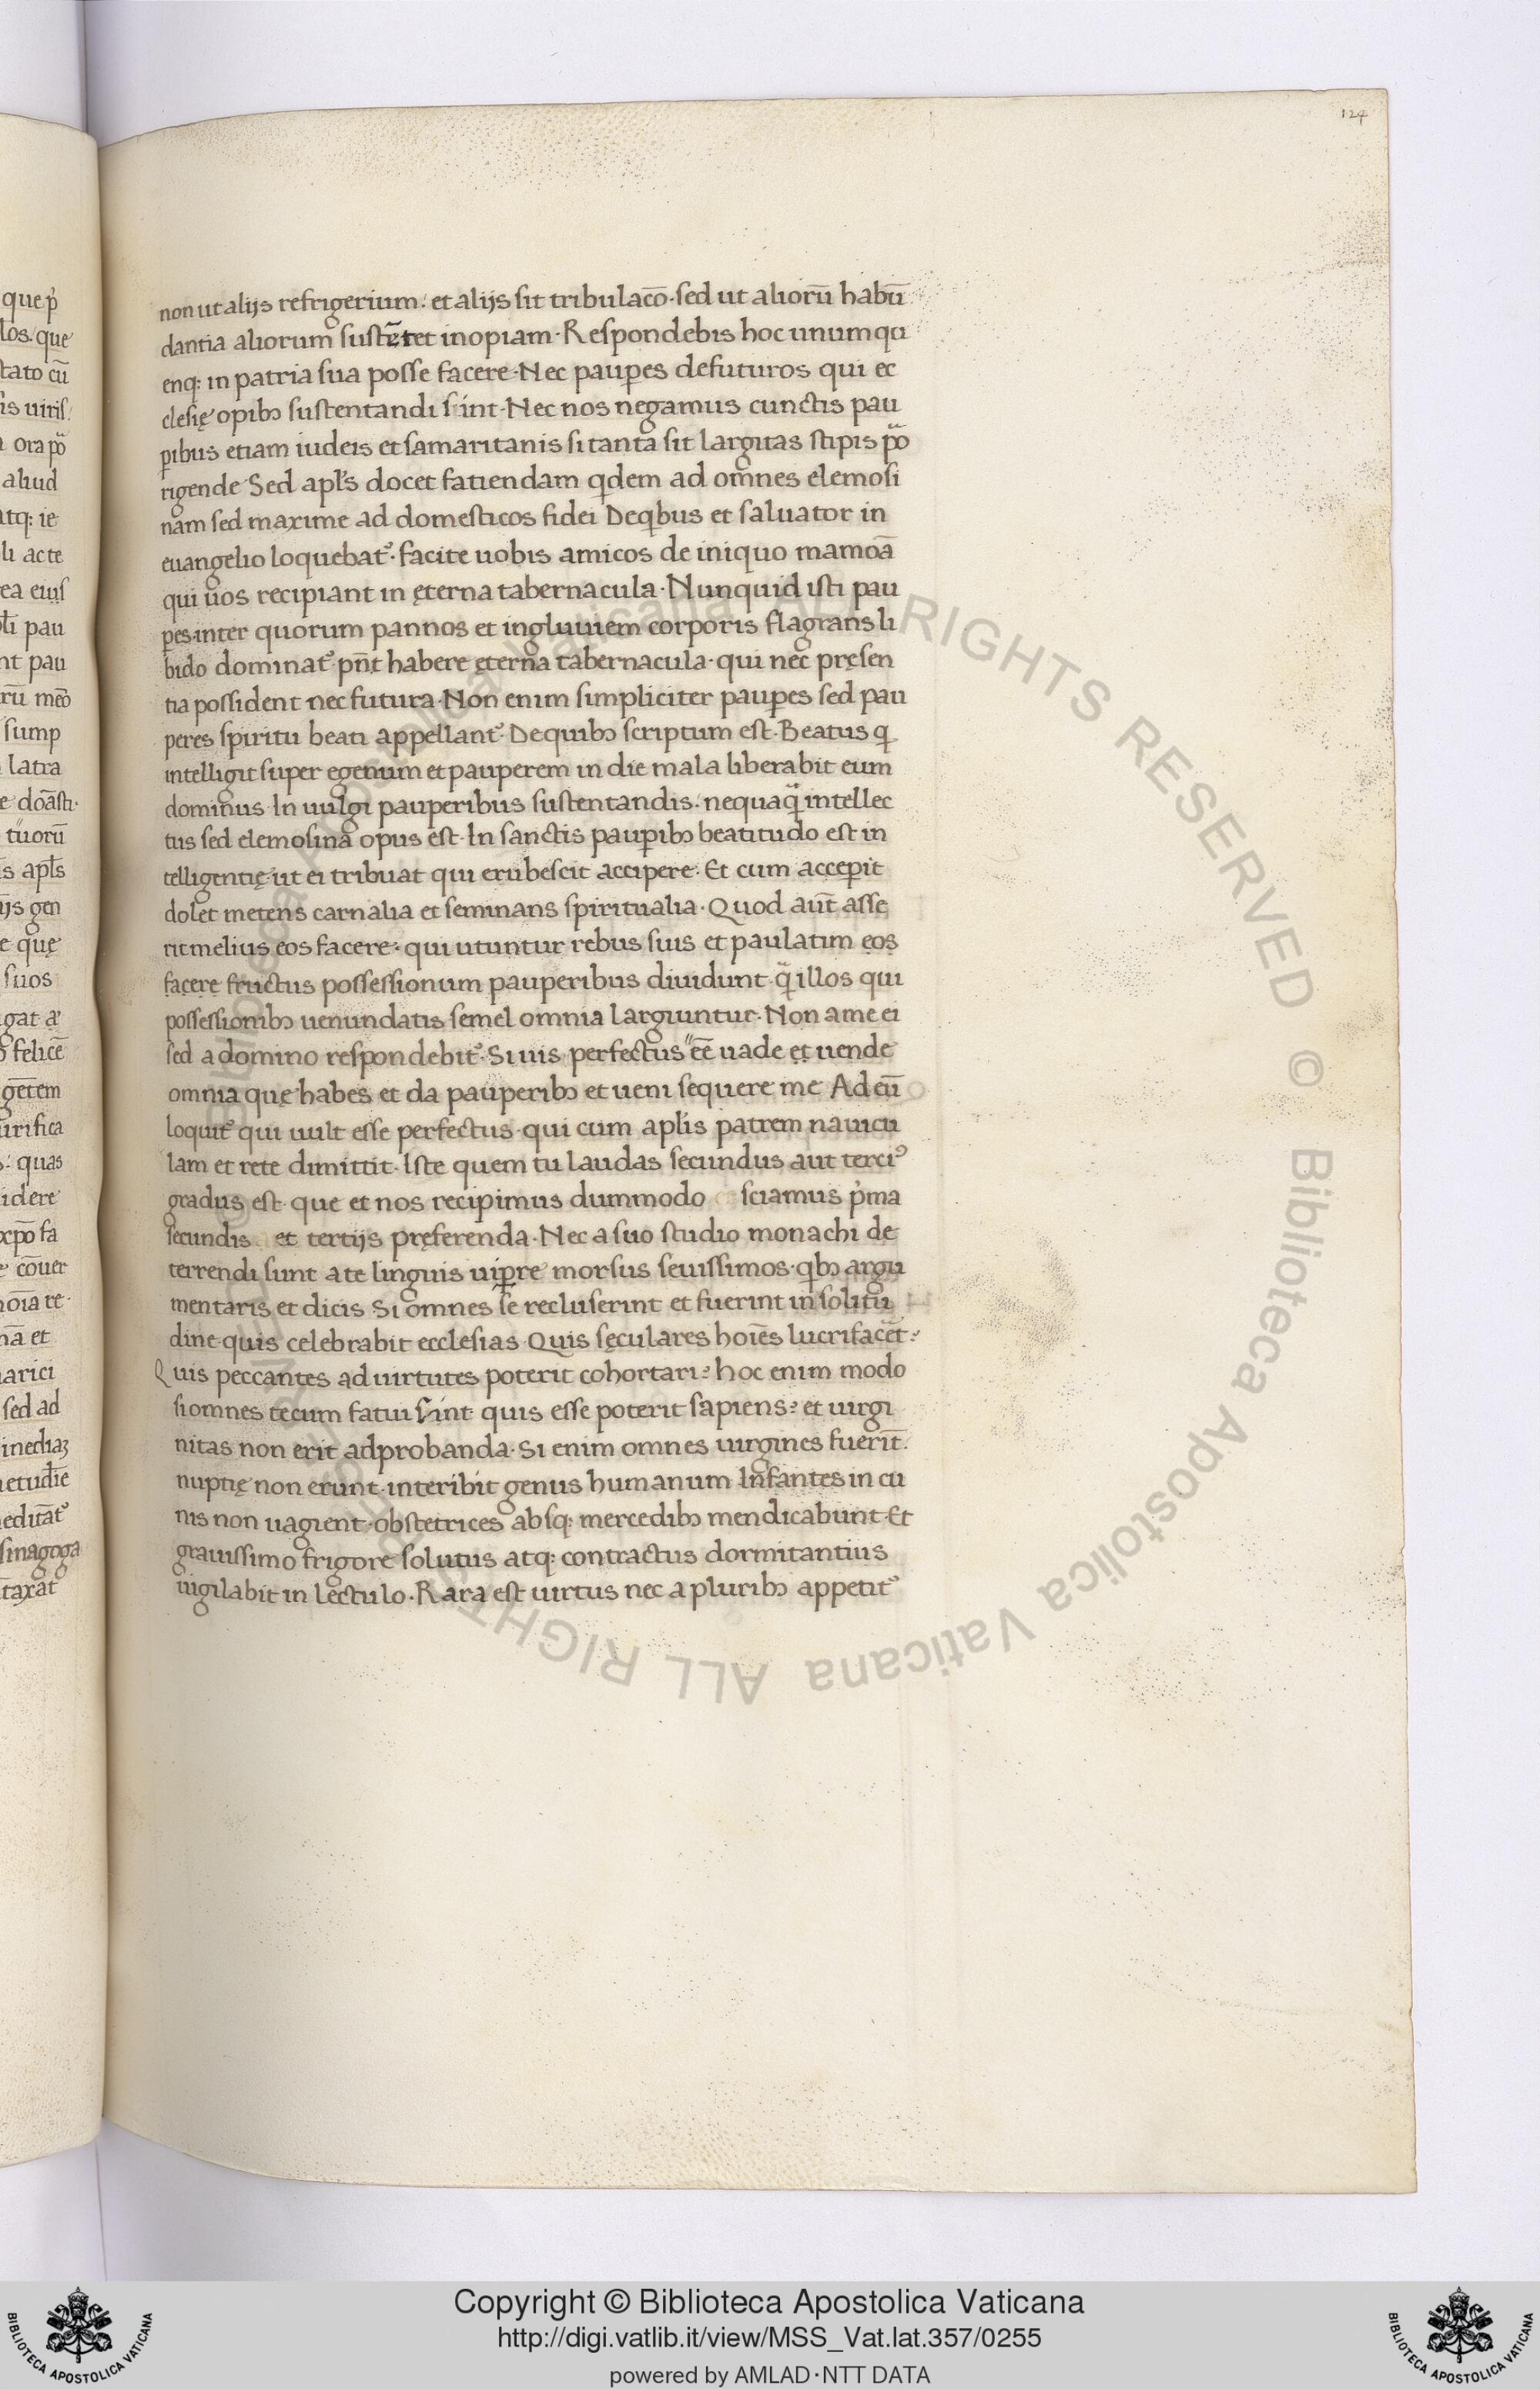 124
que ṗ
los. que
tato cū
is uiris
ora p̄o
aliud
atq: ie
li ac te
ea eius
pau
nt pau
rū meō
sump
latra
e dōasti.
tuorū
s apl̄s
ijs gen
e quę
suos
gat
felicē
gētem
urifica
quas
idere
xp̄o fa
cōuer
oīa re
nā et
arici
sed ad
inediaʒ
etudīe
editāt᾽
sinagoga
taxat
non ut alijs refrigerium: et alijs sit tribulacō· sed ut aliorū habū
dantia aliorum sustētet inopiam· Respondebis hoc unumqu
enq: in patria sua posse facere· Nec paup̱es defuturos qui ec
clesię opibꝫ sustentandi sint· Nec nos negamus cunctis pau
p̱ibus etiam iudeis et samaritanis si tanta sit largitas stipis p̄o
rigende Sed apl̄s docet fatiendam qdem ad omnes elemosi
nam sed maxime ad domesticos fidei Deqbus et saluator in
euangelio loquebat᾽· facite uobis amicos de iniquo mamoā
qui uos recipiant in ęterna tabernacula· Nunquid isti pau
p̱es inter quorum pannos et ingluuiem corporis flagrans li
bido dominat᾽ pn̄t habere ęterna tabernacula· qui nec pręsen
tia possident nec futura· Non enim simpliciter paup̱es sed pau
peres spiritu beati appellant᾽· De quibꝫ scriptum est· Beatus q
intelligit super egenum et pauperem in die mala liberabit eum
dominus· In uulgi pauperibus sustentandis: nequaq̄ intellec
tus sed elemosina opus est· In sanctis paup̱ibꝫ beatitudo est in
telligentię ut ei tribuat qui erubescit accipere· Et cum accep̱it
dolet metens carnalia et seminans spiritualia· Quod aut̄ asse
rit melius eos facere· qui utuntur rebus suis et paulatim eos
facere fructus possessionum pauperibus diuidunt· q̄ illos qui
possessionibꝫ uenundatis semel omnia largiuntur· Non a me ei
sed a domino respondebit᾽· Si uis perfectus "eē uade et uende
omnia quę habes et da pauperibꝫ et ueni sequere me Ad eū
loquit᾽ qui uult esse perfectus· qui cum apl̄is patrem nauicu
lam et rete dimittit· Iste quem tu laudas secundus aut terci᾽
gradus est· que et nos recipimus dummodo sciamus ṗma
secundis et tertijs pręferenda· Nec a suo studio monachi de
terrendi sunt a te linguis uip̱re morsus seuissimos· qbꝫ argu
mentaris et dicis Si omnes se recluserint et fuerint in solitu
dine· quis celebrabit ecclesias Quis sęculares hoīes lucrifacet:
Quis peccantes ad uirtutes poterit cohortari: hoc enim modo
si omnes tecum fatui sint· quis esse poterit sapiens: et uirgi
nitas non erit adprobanda· Si enim omnes uirgines fuerīt·
nuptię non erunt· interibit genus humanum· Infantes in cu
nis non uagient· obstetrices absq: mercedibꝫ mendicabunt· Et
grauissimo frigore solutus atq: contractus dormitantius
uigilabit in lectulo· Rara est uirtus nec a pluribꝫ appetit᾽
© Biblioteca Apostolica Vaticana ALL RIGHTS RESERVED © Biblioteca Apostolica Vaticana ALL RIGHTS RESERVED
Copyright © Biblioteca Apostolica Vaticana
http://digi.vatlib.it/view/MSS_Vat.lat.357/0255
powered by AMLAD·NTT DATA
BIBLIOTECA APOSTOLICA VATICANA
BIBLIOTECA APOSTOLICA VATICANA